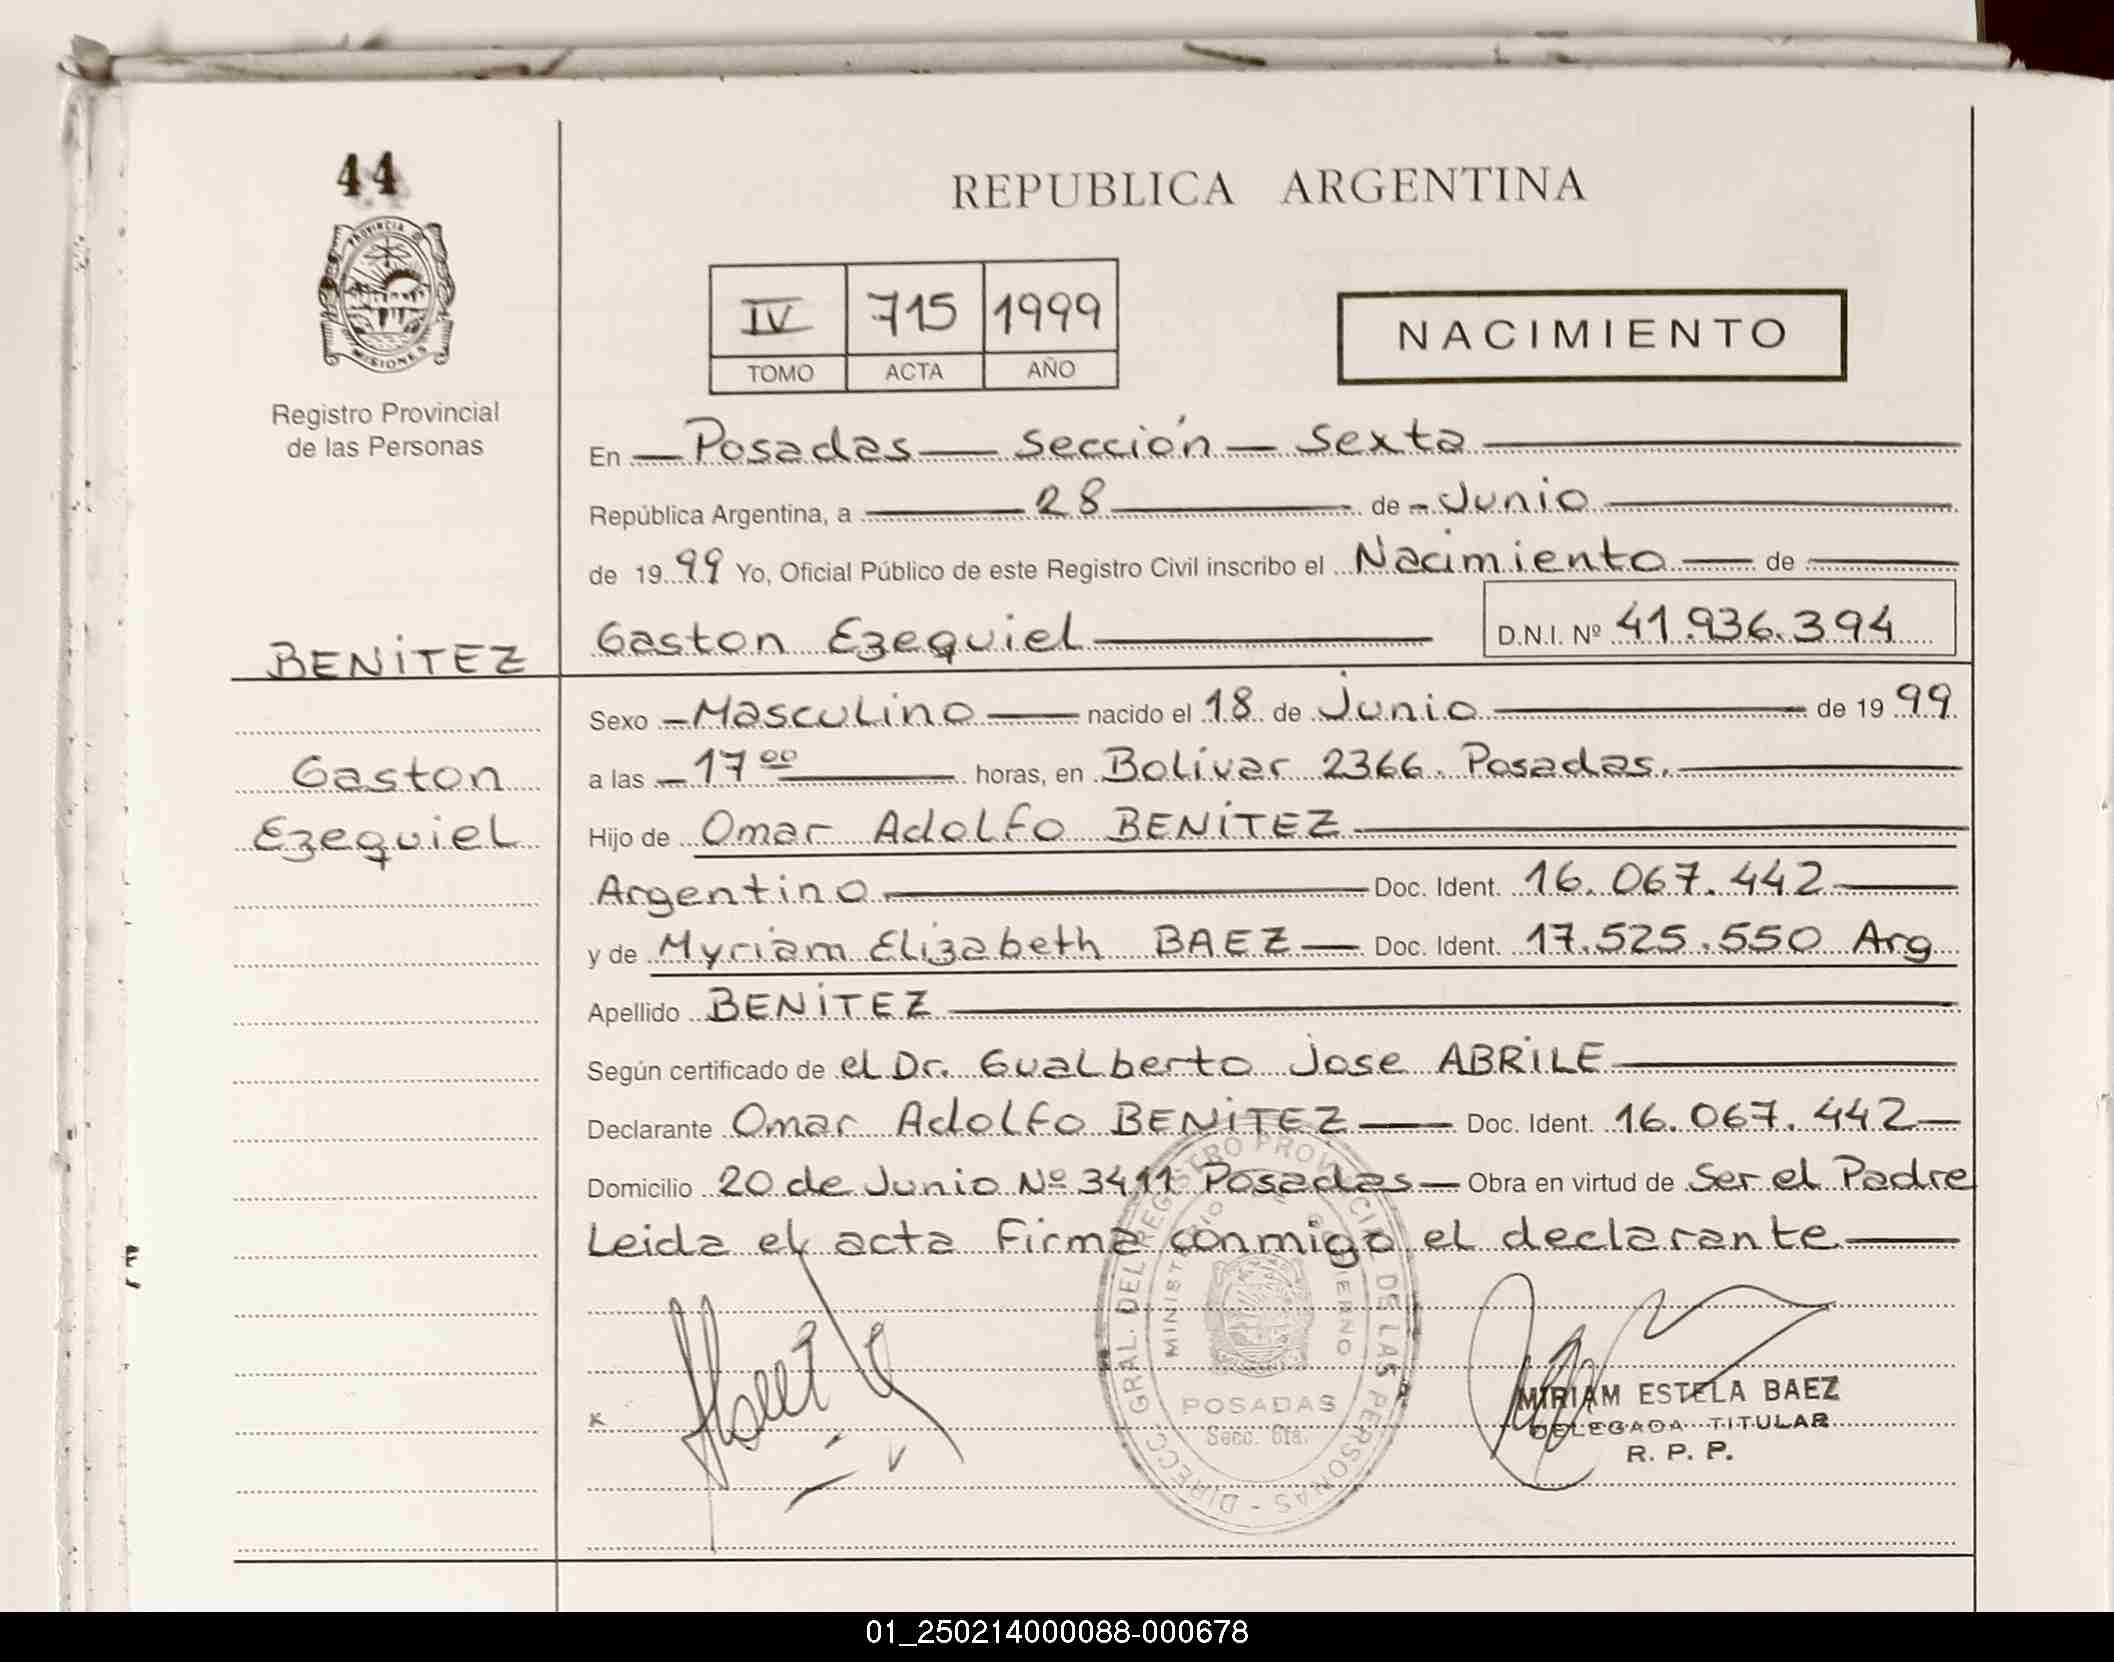 44
PROVINCIA D
MISIONES
Registro Provincial
de las Personas
REPUBLICA ARGENTINA
IV 715 1999
TOMO ACTA AÑO
NACIMIENTO
En Posadas — Sección — Sexta
República Argentina, a 28 de Junio
de 1999 Yo, Oficial Público de este Registro Civil inscribo el Nacimiento de
Gaston Ezequiel D.N.I. Nº 41.936.394
BENITEZ
Gaston
Ezequiel
Sexo Masculino nacido el 18 de Junio de 1999
a las 17 00 horas, en Bolivar 2366. Posadas.
Hijo de Omar Adolfo BENITEZ
Argentino Doc. Ident. 16.067.442
y de Myriam Elizabeth BAEZ Doc. Ident. 17.525.550 Arg
Apellido BENITEZ
Según certificado de el Dr. Gualberto Jose ABRILE
Declarante Omar Adolfo BENITEZ Doc. Ident. 16.067.442
Domicilio 20 de Junio Nº 3411 Posadas Obra en virtud de Ser el Padre
Leida el acta Firma conmigo el declarante
DIRECC. GRAL. DEL REGISTRO PROVINCIAL DE LAS PERSONAS
MINISTERIO DE GOBIERNO
POSADAS
Secc. 6ta.
MIRIAM ESTELA BAEZ
DELEGADA TITULAR
R. P. P.
01_250214000088-000678